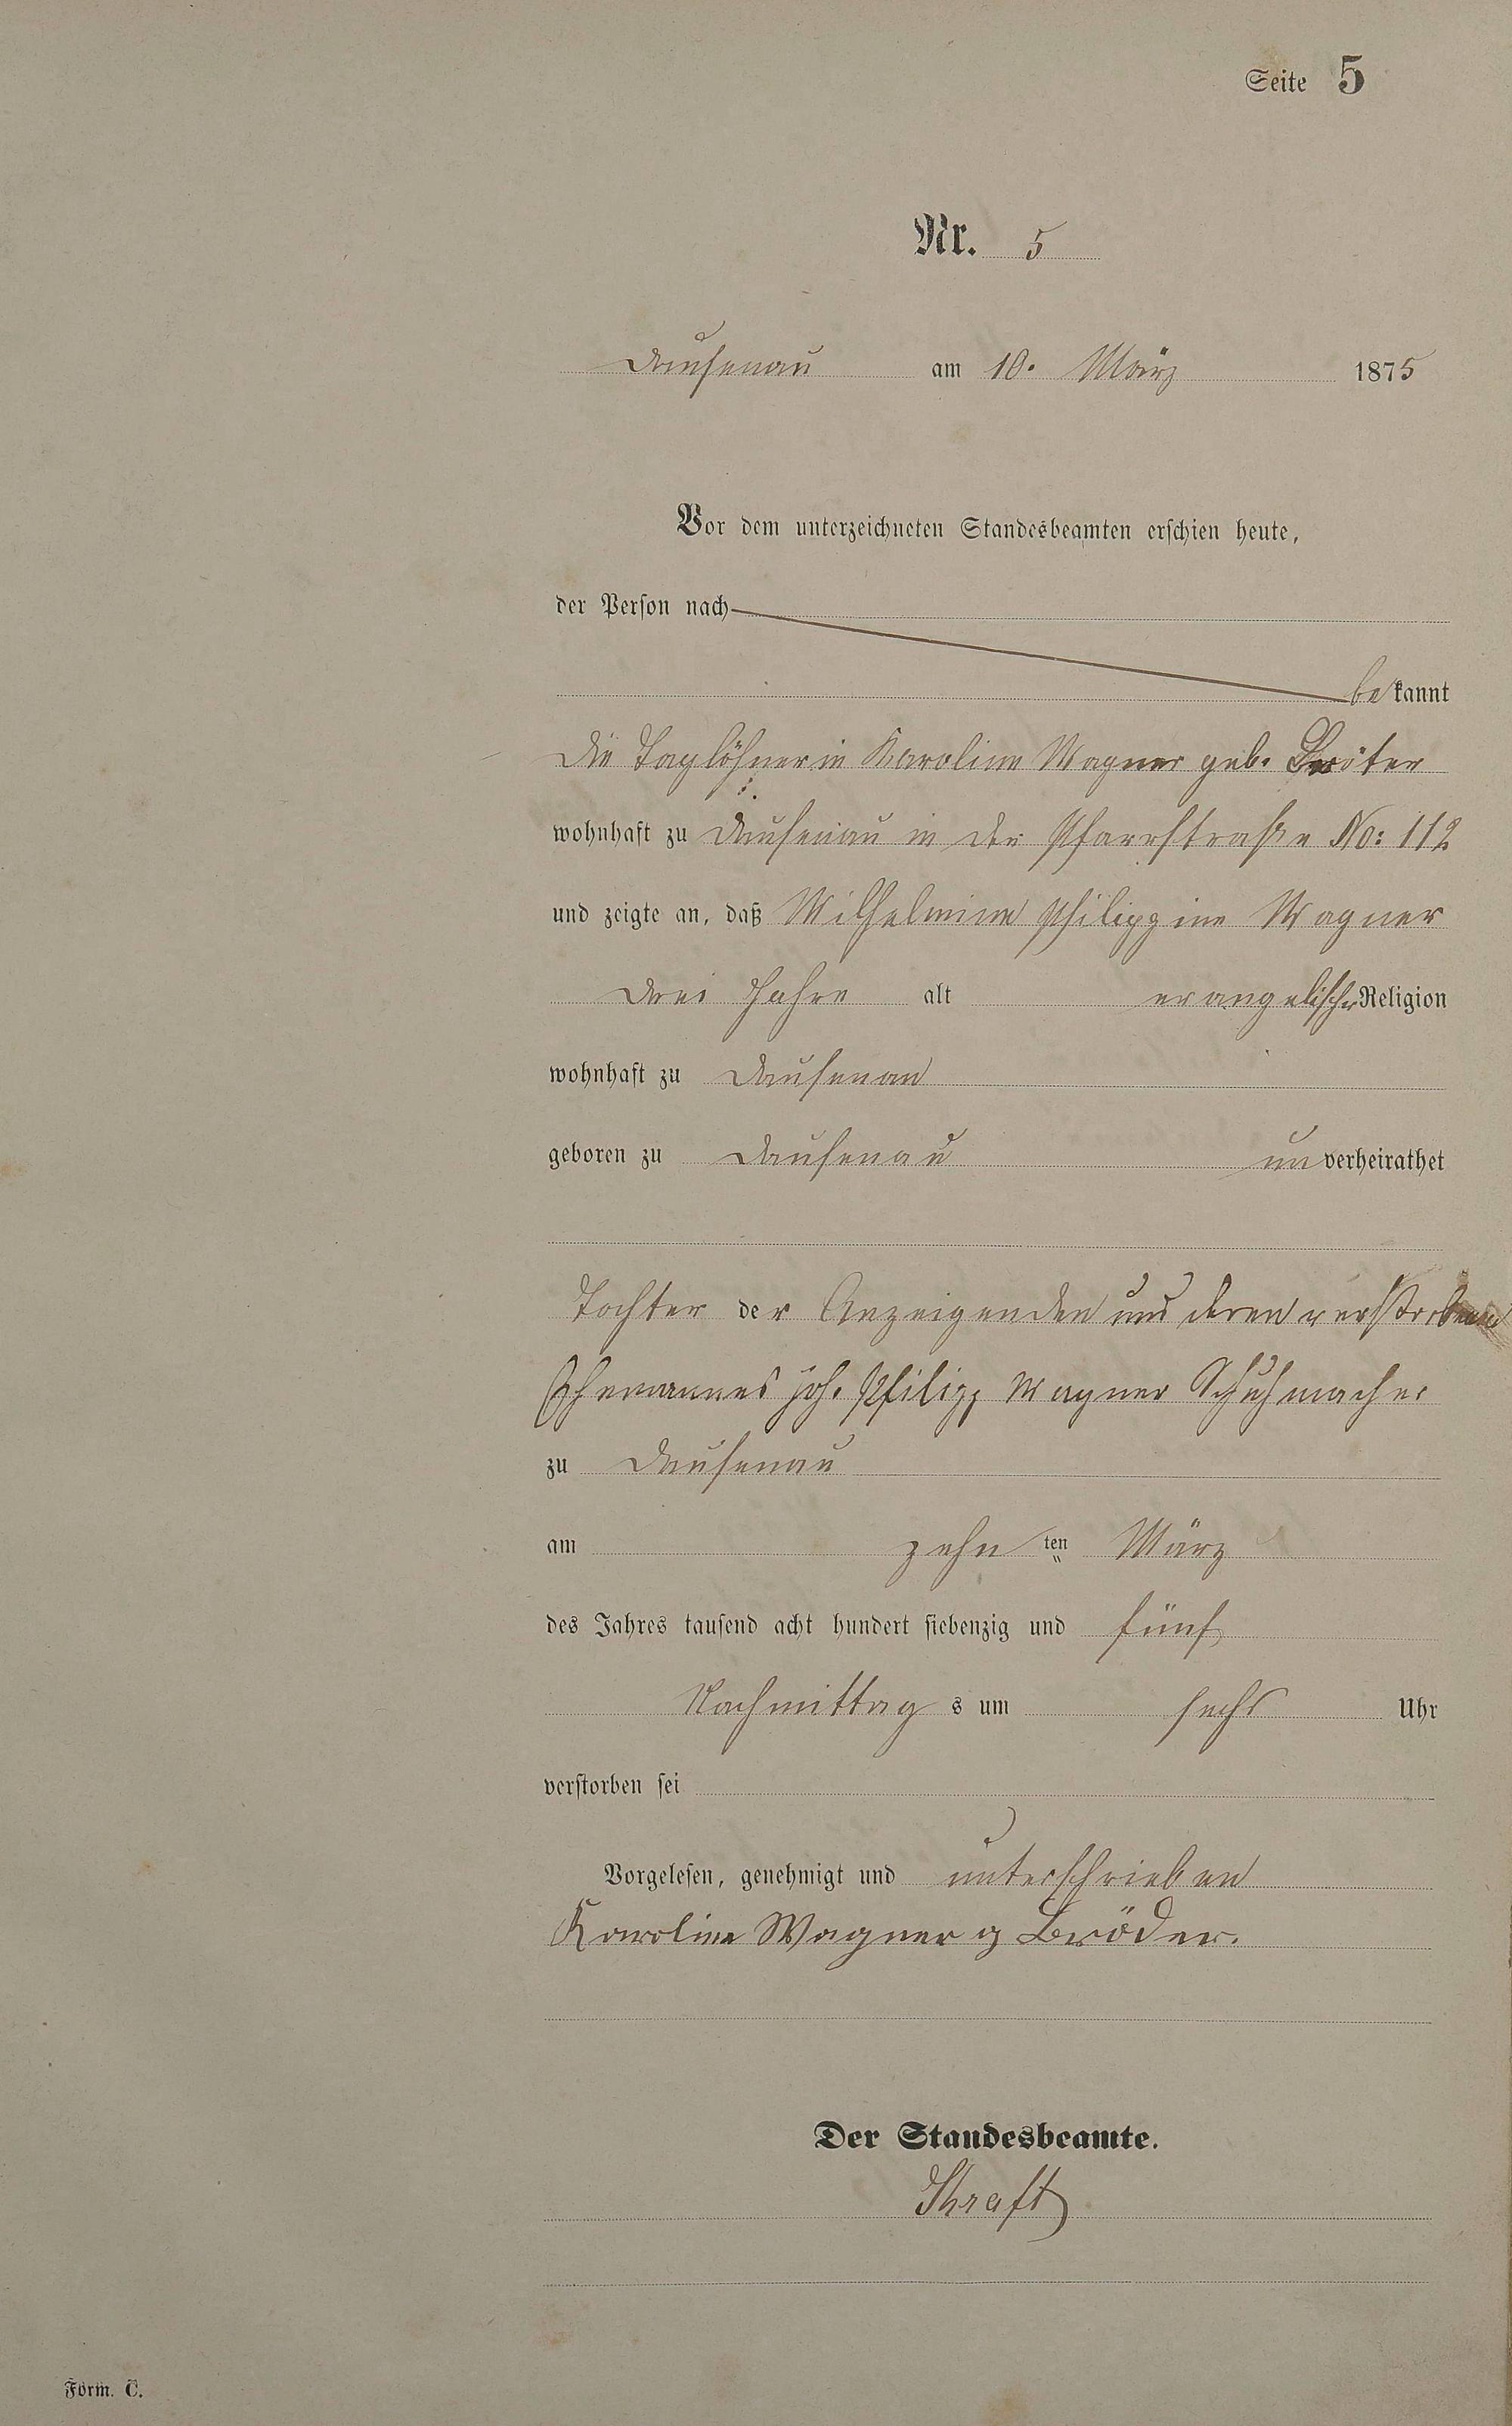 Seite 5
Nr. 5
Dausenau am 10. März 1875
Vor dem unterzeichneten Standesbeamten erschien heute,
der Person nach
bekannt
die Taglöhnerin Karoline Wagner geb. Bröter
wohnhaft zu Dausenau in der Pfarrstraße No: 112
und zeigte an, daß Wilhelmine Philippine Wagner
drei Jahre alt evangelischer Religion
wohnhaft zu Dausenau
geboren zu Dausenau unverheirathet
Tochter der Anzeigenden und deren verstorbenen
Ehemannes Joh. Philipp Wagner Schuhmacher
zu Dausenau
am zehn ten März
des Jahres tausend acht hundert siebenzig und fünf
Nachmittag s um sechs Uhr
verstorben sei
Vorgelesen, genehmigt und unterschrieben
Karoline Wagner g Bröder.
Der Standesbeamte.
Form. C.